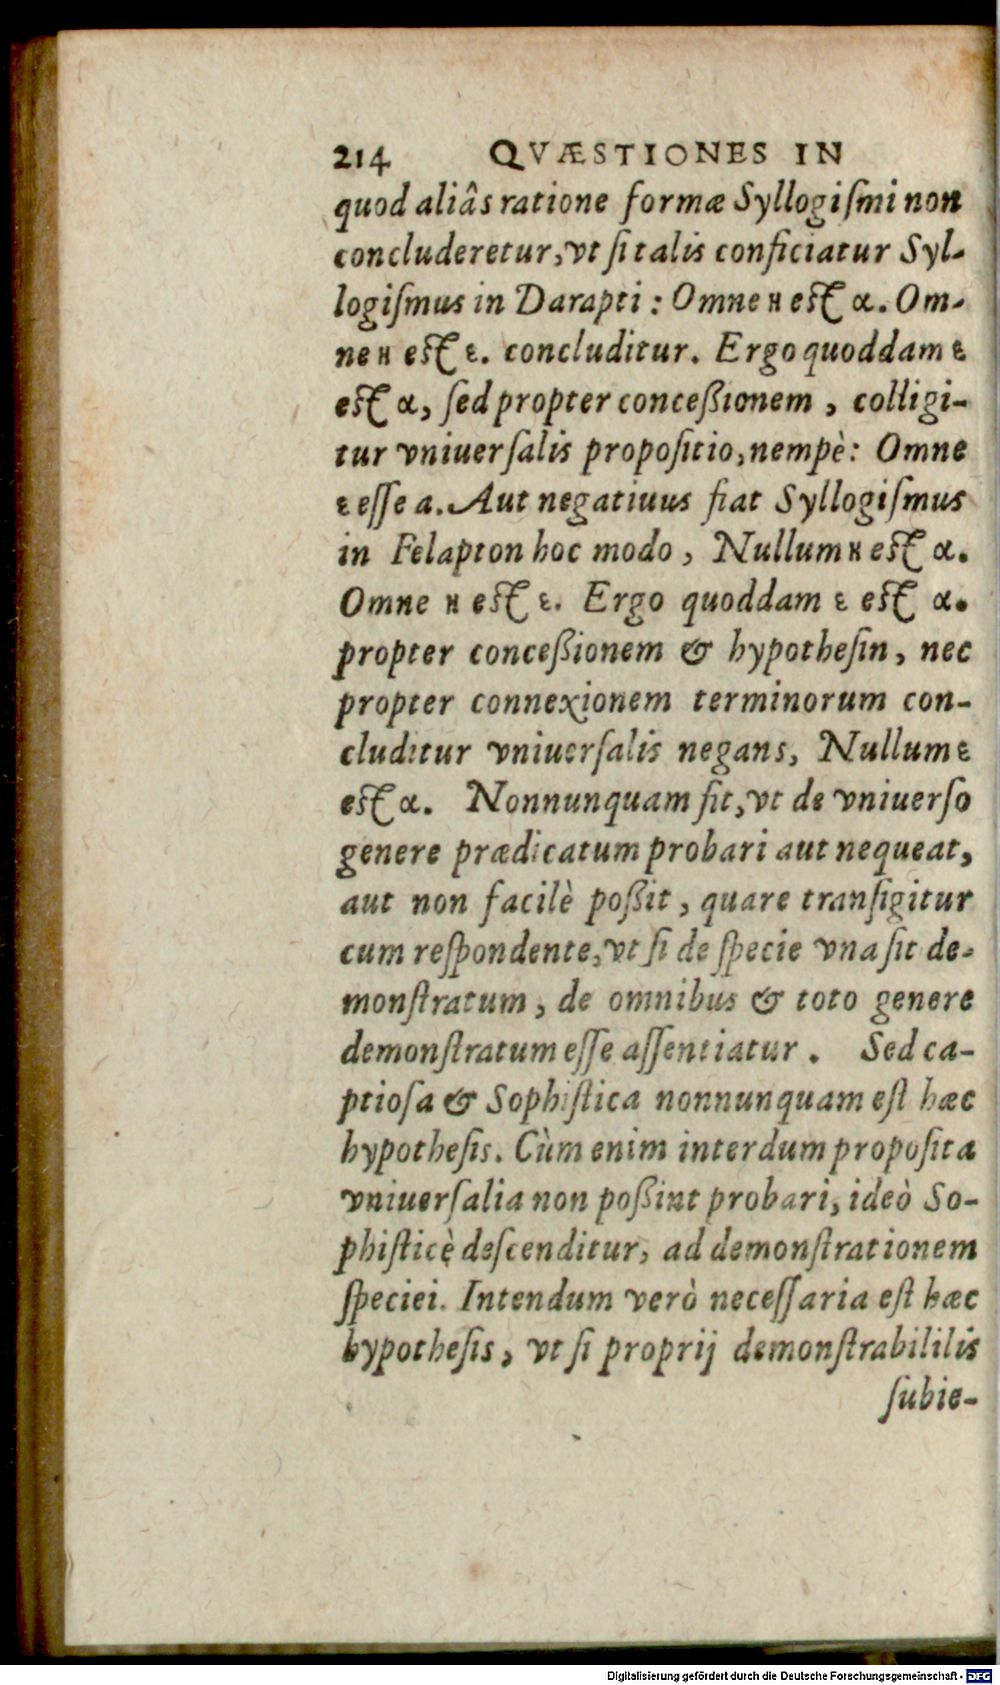 214 QVÆSTIONES IN
quod aliâs ratione formæ Syllogiſmi non
concluderetur, vt ſi talis conficiatur Syl-
logiſmus in Darapti : Omne ʜ eſt α. Om-
ne ʜ eſt ε. concluditur. Ergo quoddam ε
eſt α, ſed propter conceßionem , colligi-
tur vniuerſalis propoſitio, nempè: Omne
ε eſſe a. Aut negatiuus fiat Syllogiſmus
in Felapton hoc modo , Nullum ʜ eſt α.
Omne ʜ eſt ε. Ergo quoddam ε eſt α.
propter conceßionem & hypotheſin, nec
propter connexionem terminorum con-
cluditur vniuerſalis negans, Nullum ε
eſt α. Nonnunquam fit, vt de vniuerſo
genere prædicatum probari aut nequeat,
aut non facilè poßit , quare tranſigitur
cum reſpondente, vt ſi de ſpecie vna ſit de-
monſtratum , de omnibus & toto genere
demonſtratum eſſe aſſentiatur . Sed ca-
ptioſa & Sophiſtica nonnunquam eſt hæc
hypotheſis. Cùm enim interdum propoſita
vniuerſalia non poßint probari, ideò So-
phiſticę deſcenditur, ad demonſtrationem
ſpeciei. Intendum verò neceſſaria eſt hæc
hypotheſis , vt ſi proprij demonſtrabililis
ſubie-
Digitalisierung gefördert durch die Deutsche Forschungsgemeinschaft - DFG